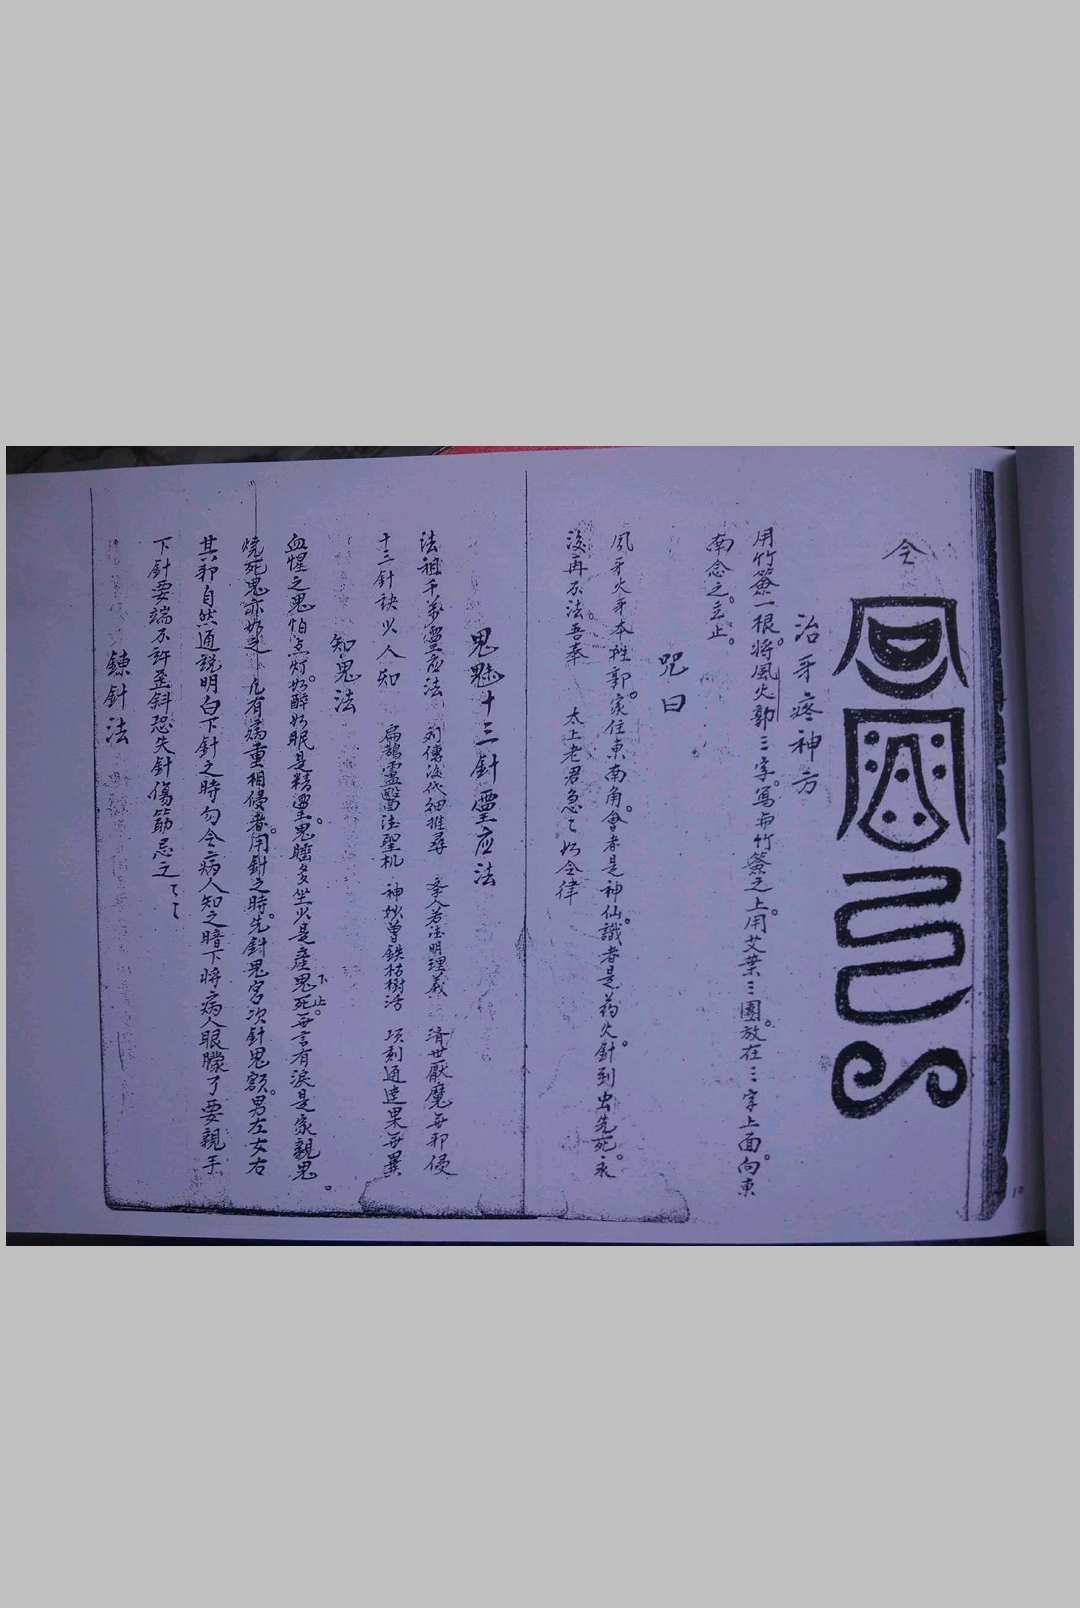 令
治牙疼神方
用竹簽一根。將風火郭三字。寫在竹簽之上。用艾葉三團。放在三字上面。向東
南念之。立止。
咒曰
風牙火牙本姓郭。家住東南角。會者是神仙。識者是药火。針到虫先死。永
後再不法。吾奉 太上老君急々如令律
鬼魅十三針靈应法
法祖千萬靈应法 列傳後代細推尋 奉人若法明理義 済世厭魔無邪侵
十三針訣少人知 扁鵲靈醫法聖机 神妙曽鉄枯樹活 項刻通達果無異
知鬼法
血惺之鬼怕点灯。如醉如眠是精灵。鬼瞎多坐火是產鬼死下止。無言有淚是家親鬼。
燒死鬼亦如之 凡有病重相侵者。用針之時。先針鬼宮次針鬼額。男左女右
其邪自然通説明白下針之時勿令病人知之暗下將病人眼朦了要親手
下針要端不許歪斜恐失針傷筋忌之々々
鍊針法
19